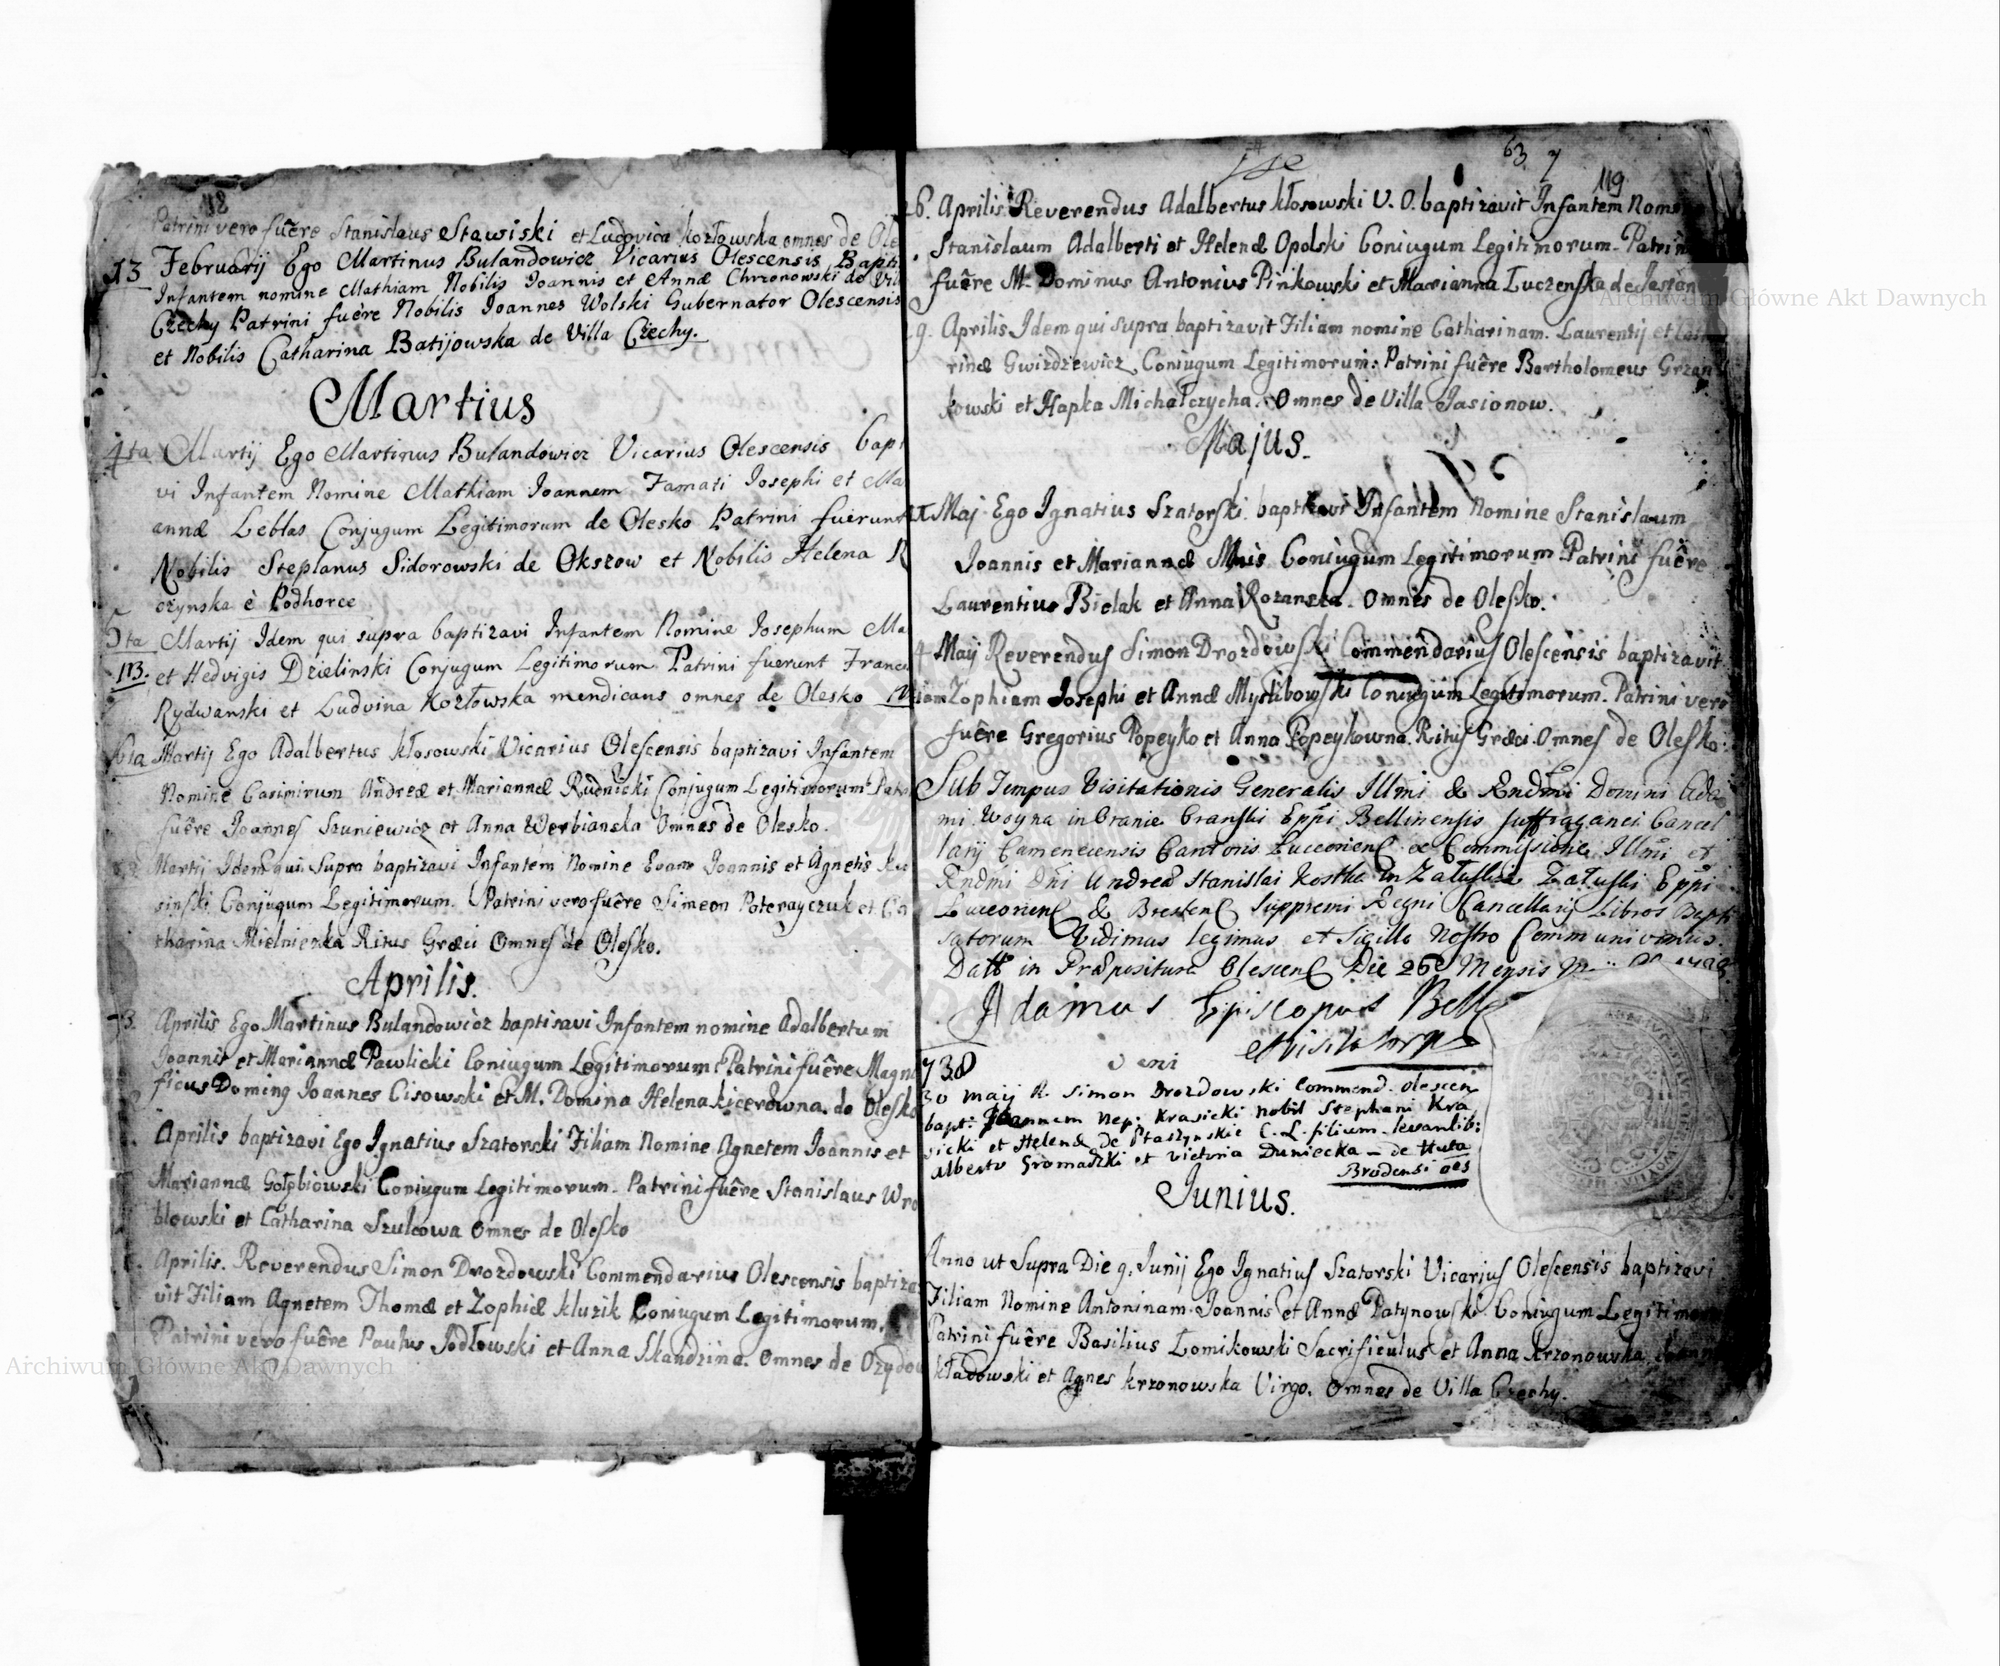 118
Patrini vero fuêre Stanislaus Stawiski et Ludovica Kozłowska omnes de Ole
13 Februarij Ego Martinus Bulandowicz Vicarius Olescensis Bapti
Infantem nomine Mathiam Nobilis Joannis et Annæ Chrzonowski de Vil
Czechy Patrini fuêre Nobilis Joannes Wolski Gubernator Olescensis
et Nobilis Catharina Batijowska de Villa Czechy.
Martius
4ta Martij Ego Martinus Bulandowicz Vicarius Olescensis bapt
vi Infantem Nomine Mathiam Joannem Famati Josephi et Ma
annæ Leblas Conjugum Legitimorum de Olesko Patrini fuerunt
Nobilis Steplanus Sidorowski de Okszow et Nobilis Helena R
czynska è Podhorce
5ta Martij Idem qui supra baptizavi Infantem Nomine Josephum Ma
et Hedvigis Dzielinski Conjugum Legitimorum Patrini fuerunt Franci
Rydwanski et Ludvina Kozłowska mendicans omnes de Olesko
6ta Martij Ego Adalbertus Kłosowski Vicarius Olescensis baptizavi Infantem
Nomine Casimirum Andreæ et Mariannæ Rudnicki Conjugum Legitimorum Patri
fuêre Joannes Szuniewicz et Anna Werbianska Omnes de Olesko.
Martij Idem qui Supra baptizavi Infantem Nomine Evam Joannis et Agnetis
sinski Conjugum Legitimorum. Patrini vero fuêre Simeon Paterayczuk et Ca
tharina Mielniczka Ritus Græci Omnes de Olesko.
Aprilis.
Aprilis Ego Martinus Bulandowicz baptisavi Infantem nomine Adalbertum
Joannis et Mariannæ Pawlicki Coniugum Legitimorum Patrini fuêre Magni
ficus Doming Joannes Cisowski et M. Domina Helena Kicerowna. de Olesko
Aprilis baptizavi Ego Ignatius Szatorski Filiam Nomine Agnetem Joannis et
Mariannæ Gołębiowski Coniugum Legitimorum. Patrini fuêre Stanislaus Wro
blowski et Catharina Szulcowa Omnes de Olesko
Aprilis. Reverendus Simon Drozdowski Commendarius Olescensis baptiza
vit Filiam Agnetem Thomæ et Zophiæ Kluzik Coniugum Legitimorum.
Patrini vero fuêre Paulus Jodłowski et Anna Skandzina. Omnes de Ozydow
63 7
119
26. Aprilis Reverendus Adalbertus Kłosowski V. O. baptizavit Infantem Nom
Stanislaum Adalberti et Helenæ Opolski Coniugum Legitimorum. Patrini
fuêre M. Dominus Antonius Pinkowski et Marianna Łuczenska de Jasion
9. Aprilis Idem qui supra baptizavit Filiam nomine Catharinam. Laurentij et Catha
rinæ Gwizdzewicz Coniugum Legitimorum. Patrini fuêre Bartholomeus Grzan
kowski et Hapka Michałczycha. Omnes de Villa Jasionow.
Majus.
Maj Ego Ignatius Szatorski baptizavi Infantem Nomine Stanislaum
Joannis et Mariannæ Mnis Coniugum Legitimorum Patrini fuêre
Laurentius Bielak et Anna Rozanska. Omnes de Olesko.
4 Maij Reverendus Simon Drozdowski Commendarius Olescensis baptizavit
liam Zophiam Josephi et Annæ Myslibowski Coniugum Legitimorum. Patrini vero
fuêre Gregorius Popeyko et Anna Popeykowna. Ritus Græci. Omnes de Olesko.
Sub Tempus Visitationis Generalis Illmi & Rndmi Domini Ada
mi Woyna in Oranie Oranski Eppi Bellinensis suffraganei Cancel
larij Camenecensis Cantoris Luceorien ex Commissione Illmi et
Rndmi Dni Andreæ Stanislai Kostka in Załuskie Załuski Eppi
Luceorien & Bresten Suppremi Regni Cancellarij Libros Bapti
satorum Vidimus legimus et Sigillo Nostro Communivimus.
Datt in Præpositura Olescen Die 26 Mensis
Adamus Episcopus Bell
et Visitator
738
30 Maij R. Simon Drozdowski Commend. Olescen
bapt: Joannem Nep: Krasicki nobil Stephani Kra
sicki et Helenæ de Ptaszynskie C. L. filium. levantib:
alberto Gromadzki et Victoria Duniecka – de Huta
Brodensi oes
Junius.
Anno ut Supra Die 9. Junij Ego Ignatius Szatorski Vicarius Olescensis baptizavi
Filiam Nomine Antoninam. Joannis et Annæ Patynowski Coniugum Legitimor
Patrini fuêre Basilius Łomikowski Sacrificulus et Anna Krzonowska
Kładowski et Agnes Krzonowska Virgo. Omnes de Villa Czechy.
Archiwum Główne Akt Dawnych
Archiwum Główne Akt Dawnych